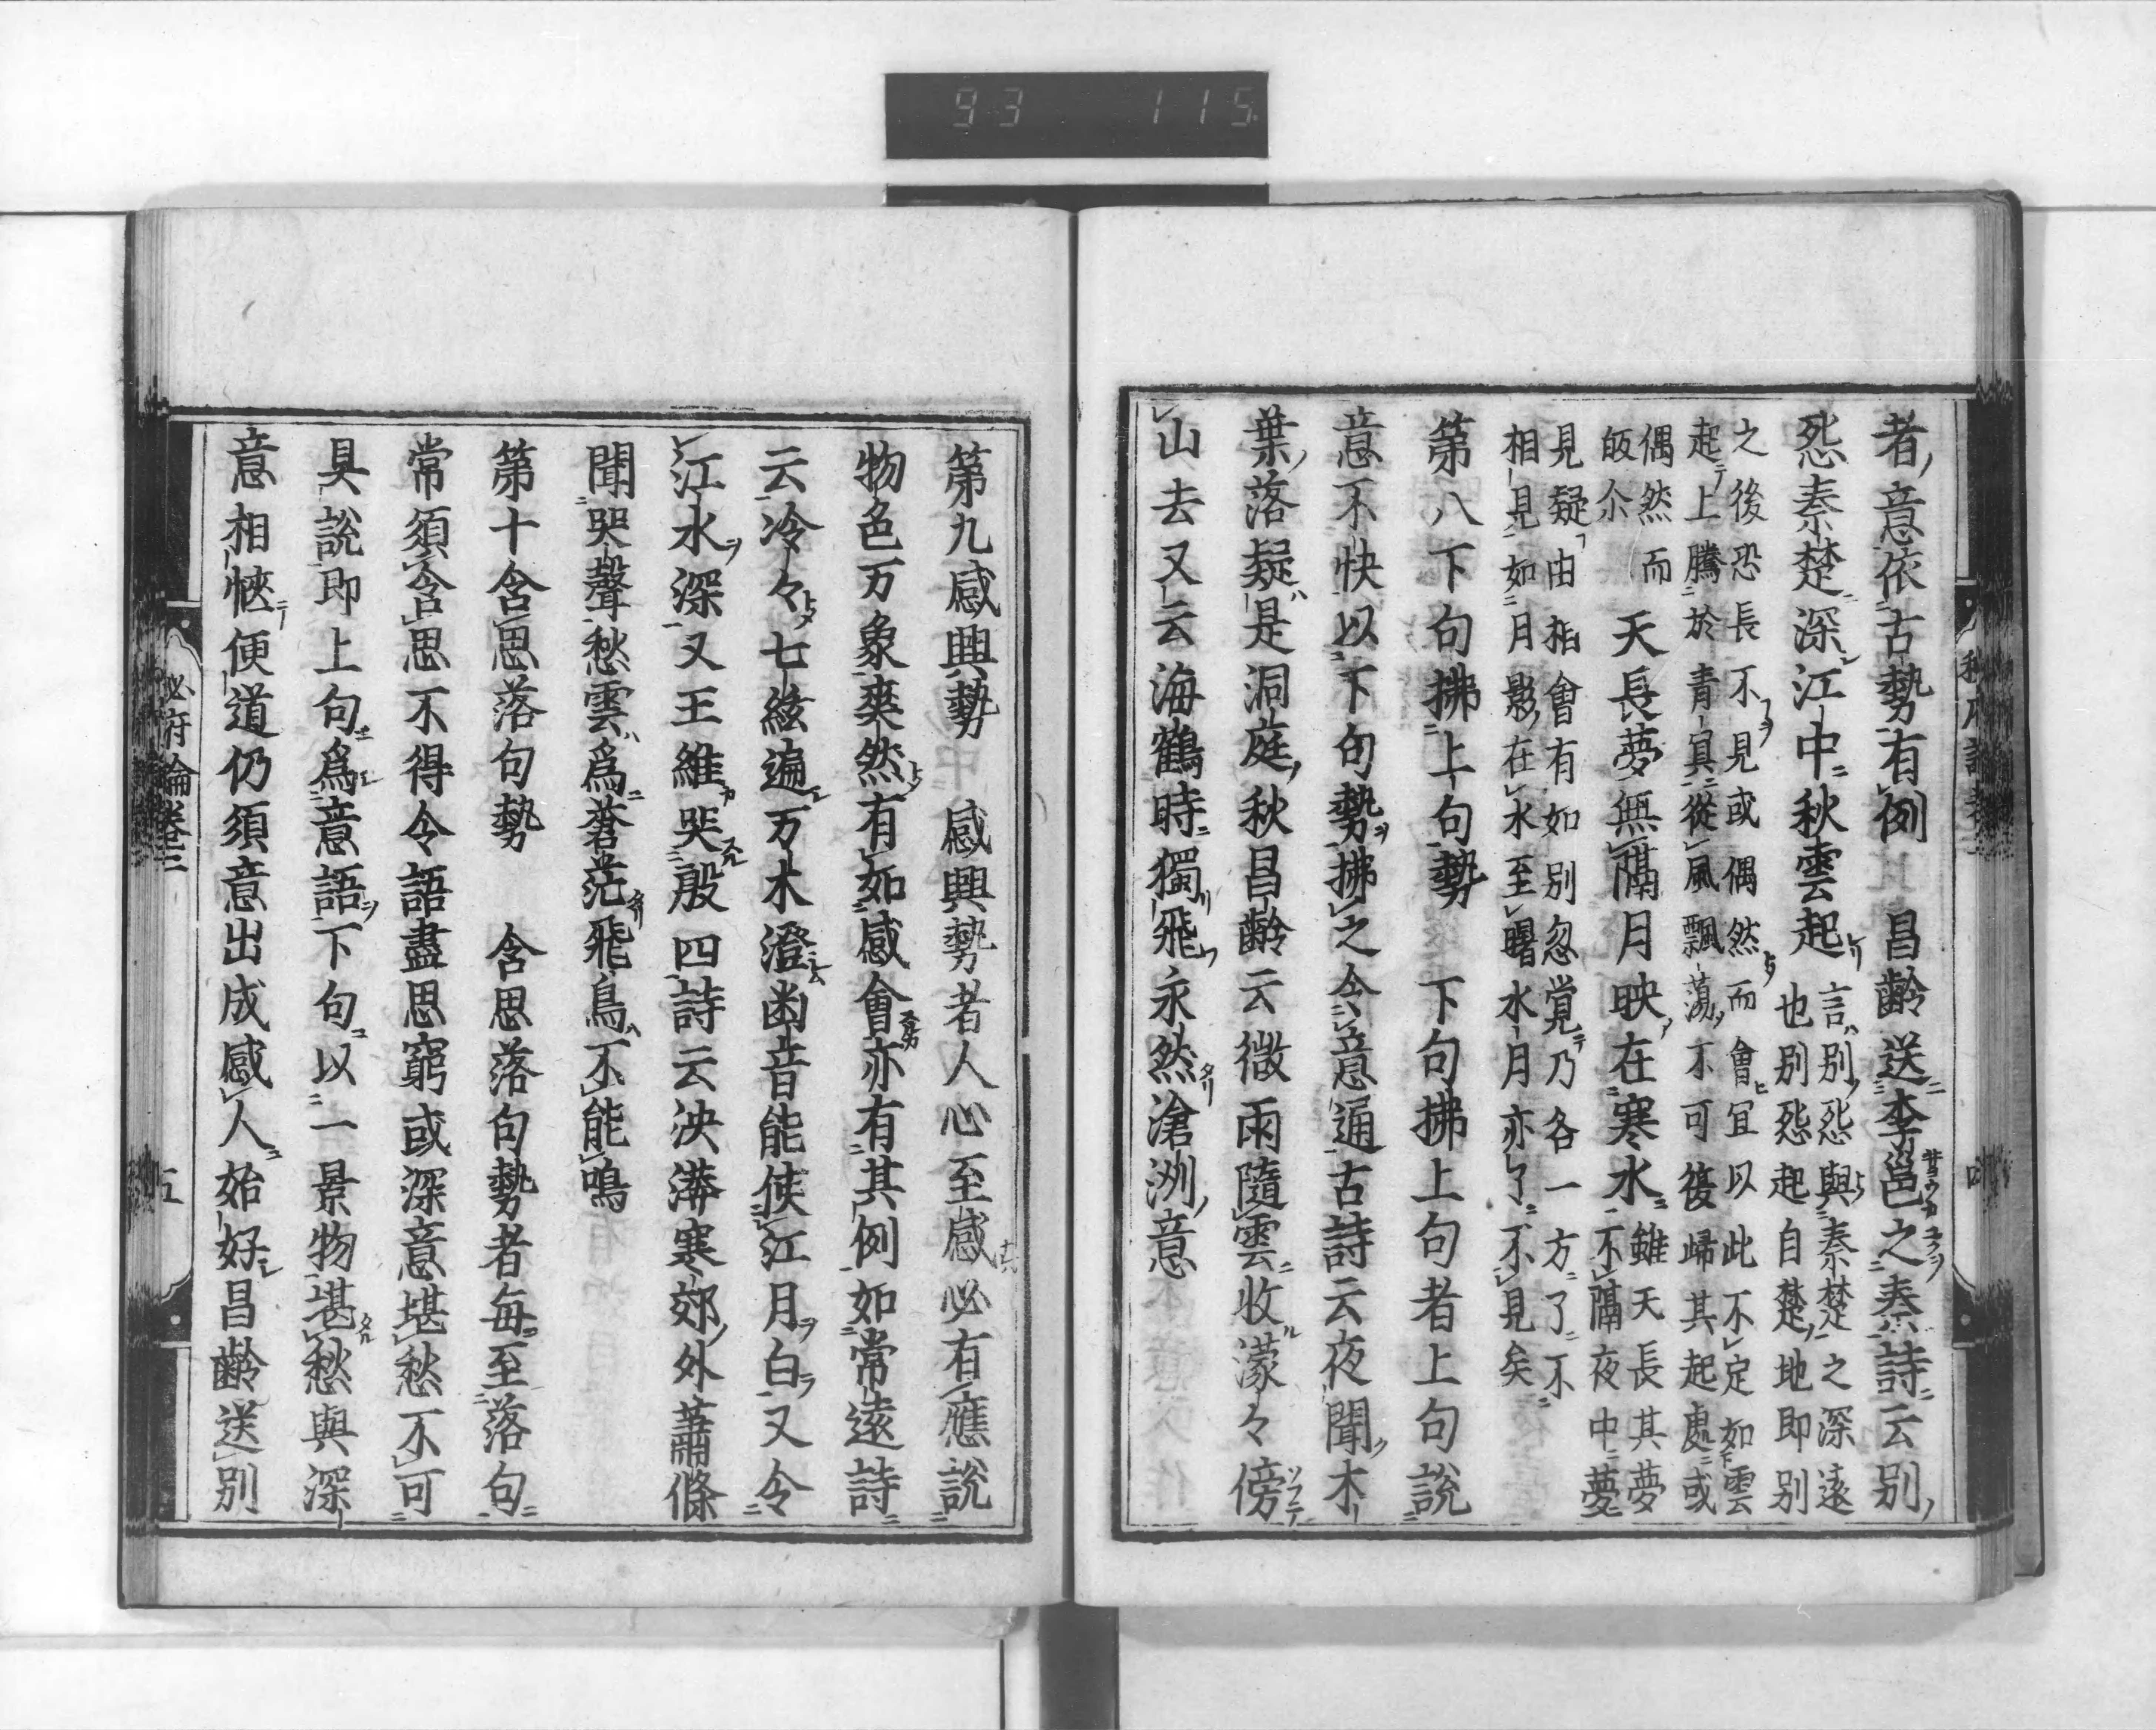 93 115
者意依古勢有例 昌齡送李邕之秦詩云别
怨秦楚深江中秋雲起 言别怨與秦楚之深遠
也别怨起自楚地即别
之後恐長不見或偶然而會冝以此不定如雲
起上騰於青冥從風飄蕩不可復歸其起處或
偶然而
皈尒
天長夢無隔月映在寒水 雖天長其夢
不隔夜中夢
見疑由相會有如别忽覚乃各一方了不
相見如月影在水至曙水月亦了不見矣
第八下句拂上句勢 下句拂上句者上句説
意不快以下句勢拂之令意通古詩云夜聞木
葉落疑是洞庭秋昌齡云微雨隨雲收濛々傍
山去又云海鶴時獨飛永然滄洲意
第九感興勢 感興勢者人心至感必有應説
物色万象爽然有如感會亦有其例如常逺詩
云冷々七絃遍万木澄幽音能使江月白又令
江水深又王維哭殷四詩云泱漭寒郊外蕭條
聞哭聲愁雲爲蒼茫飛鳥不能鳴
第十含思落句勢 含思落句勢者每至落句
常須含思不得令語盡思窮或深意堪愁不可
具説即上句爲意語下句以一景物堪愁與深
意相愜便道仍須意出成感人始好昌齡送别
必府論卷三
五